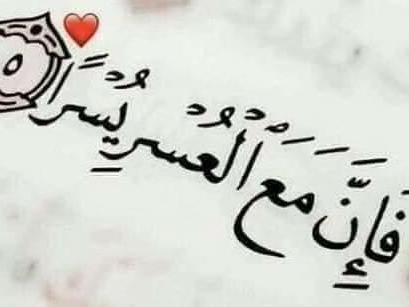 فَإِنَّ مَعَ الْعُسْرِ يُسْرًا ۝٥